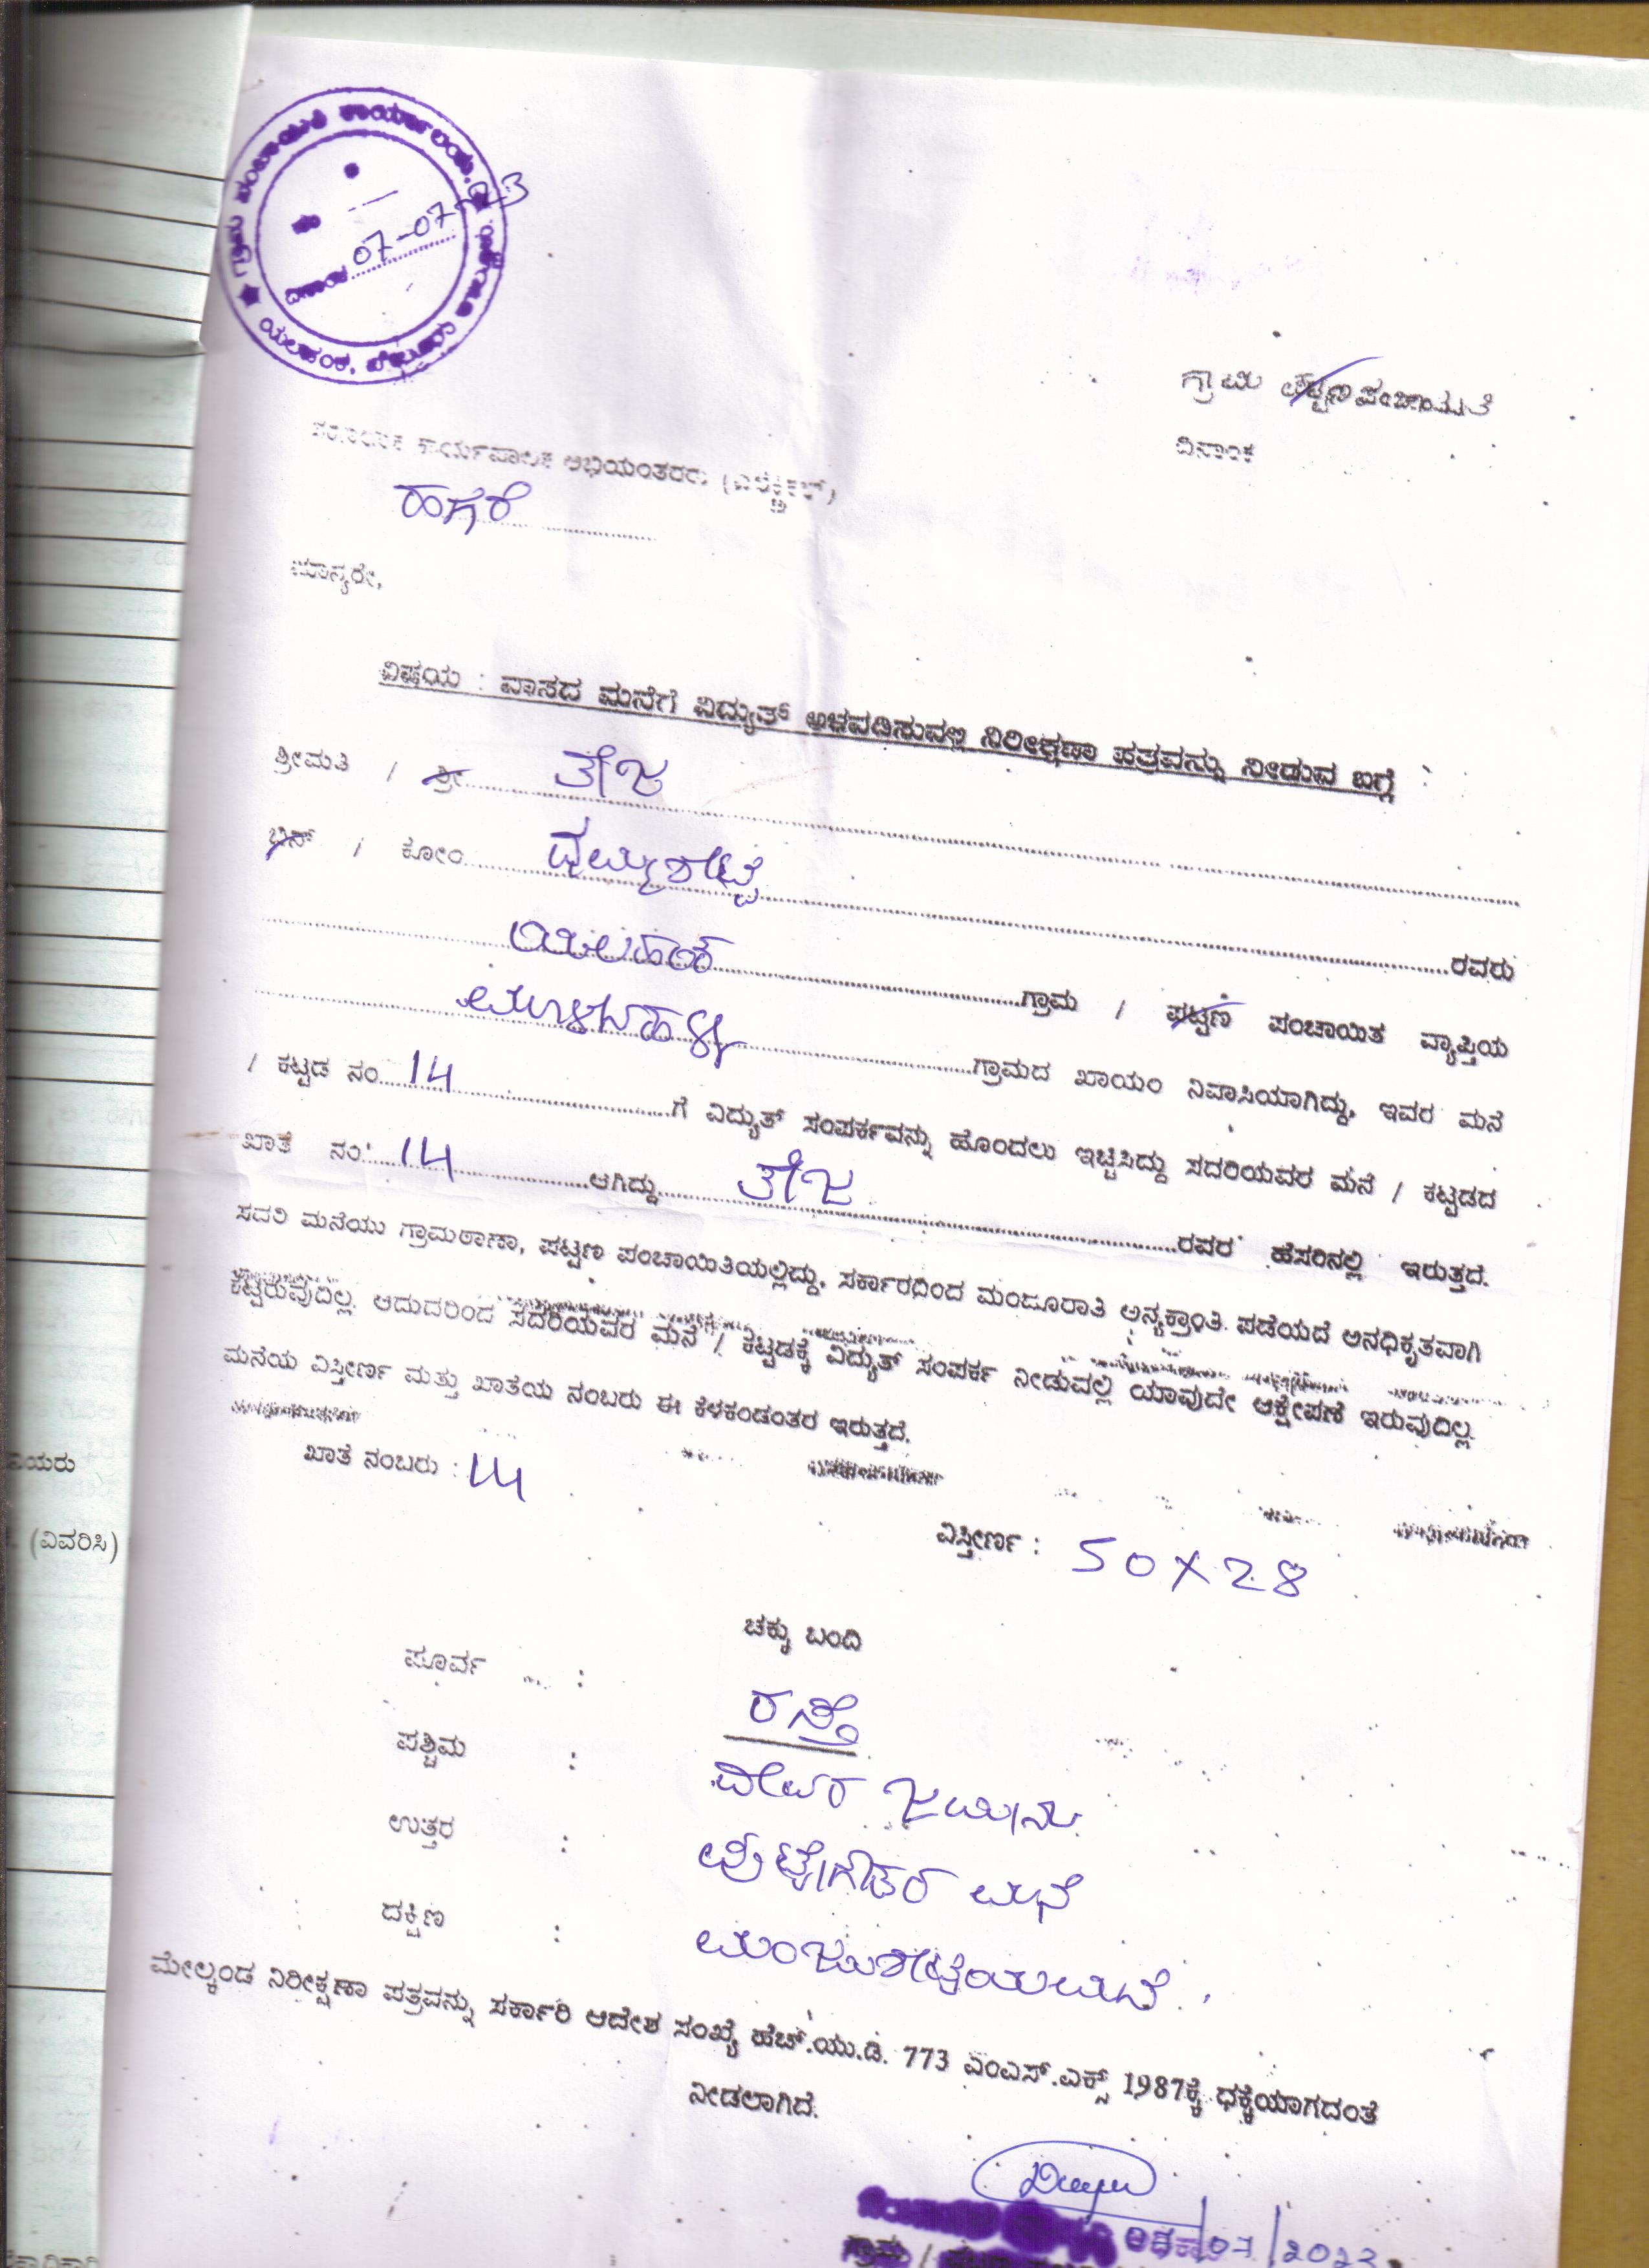 ದಿನಾಂಕ 07-07-23
ಗ್ರಾಮ ಪಟ್ಟಣ ಪಂಚಾಯಿತಿ
ದಿನಾಂಕ
ಕಾರ್ಯಪಾಲಕ ಅಭಿಯಂತರರು (ಎಲೆಕ್ಟ್ರಿಕಲ್)
ಹಗರೆ
ಮಾನ್ಯರೇ,
ವಿಷಯ : ವಾಸದ ಮನೆಗೆ ವಿದ್ಯುತ್ ಅಳವಡಿಸುವಲ್ಲಿ ನಿರೀಕ್ಷಣಾ ಪತ್ರವನ್ನು ನೀಡುವ ಬಗ್ಗೆ
ಶ್ರೀಮತಿ / ಶ್ರೀ ತೇಜ
ಬಿನ್ / ಕೋಂ ರವರು
ಗ್ರಾಮ / ಪಟ್ಟಣ ಪಂಚಾಯಿತ ವ್ಯಾಪ್ತಿಯ
ಗ್ರಾಮದ ಖಾಯಂ ನಿವಾಸಿಯಾಗಿದ್ದು, ಇವರ ಮನೆ
/ ಕಟ್ಟಡ ನಂ 14 ಗೆ ವಿದ್ಯುತ್ ಸಂಪರ್ಕವನ್ನು ಹೊಂದಲು ಇಚ್ಚಿಸಿದ್ದು ಸದರಿಯವರ ಮನೆ / ಕಟ್ಟಡದ
ಖಾತೆ ನಂ. 14 ಆಗಿದ್ದು ತೇಜ ರವರ ಹೆಸರಿನಲ್ಲಿ ಇರುತ್ತದೆ.
ಸದರಿ ಮನೆಯು ಗ್ರಾಮಠಾಣಾ, ಪಟ್ಟಣ ಪಂಚಾಯಿತಿಯಲ್ಲಿದ್ದು, ಸರ್ಕಾರದಿಂದ ಮಂಜೂರಾತಿ ಅನ್ಯಕ್ರಾಂತಿ ಪಡೆಯದೆ ಅನಧಿಕೃತವಾಗಿ
ಕಟ್ಟಿರುವುದಿಲ್ಲ. ಆದುದರಿಂದ ಸದರಿಯವರ ಮನೆ / ಕಟ್ಟಡಕ್ಕೆ ವಿದ್ಯುತ್ ಸಂಪರ್ಕ ನೀಡುವಲ್ಲಿ ಯಾವುದೇ ಆಕ್ಷೇಪಣೆ ಇರುವುದಿಲ್ಲ.
ಮನೆಯ ವಿಸ್ತೀರ್ಣ ಮತ್ತು ಖಾತೆಯ ನಂಬರು ಈ ಕೆಳಕಂಡಂತರ ಇರುತ್ತದೆ.
ಖಾತೆ ನಂಬರು : 14
ವಿಸ್ತೀರ್ಣ : 50X28
ಚಕ್ಕು ಬಂದಿ
ಪೂರ್ವ : ರಸ್ತೆ
ಪಶ್ಚಿಮ : ಜಮೀನು
ಉತ್ತರ : ಮನೆ
ದಕ್ಷಿಣ : ಮಂಜುಶೆಟ್ಟಿಯಮನೆ
ಮೇಲ್ಕಂಡ ನಿರೀಕ್ಷಣಾ ಪತ್ರವನ್ನು ಸರ್ಕಾರಿ ಆದೇಶ ಸಂಖ್ಯೆ ಹೆಚ್.ಯು.ಡಿ. 773 ಎಂಎಸ್.ಎಕ್ಸ್ 1987ಕ್ಕೆ ಧಕ್ಕೆಯಾಗದಂತೆ
ನೀಡಲಾಗಿದೆ.
(ವಿವರಿಸಿ)